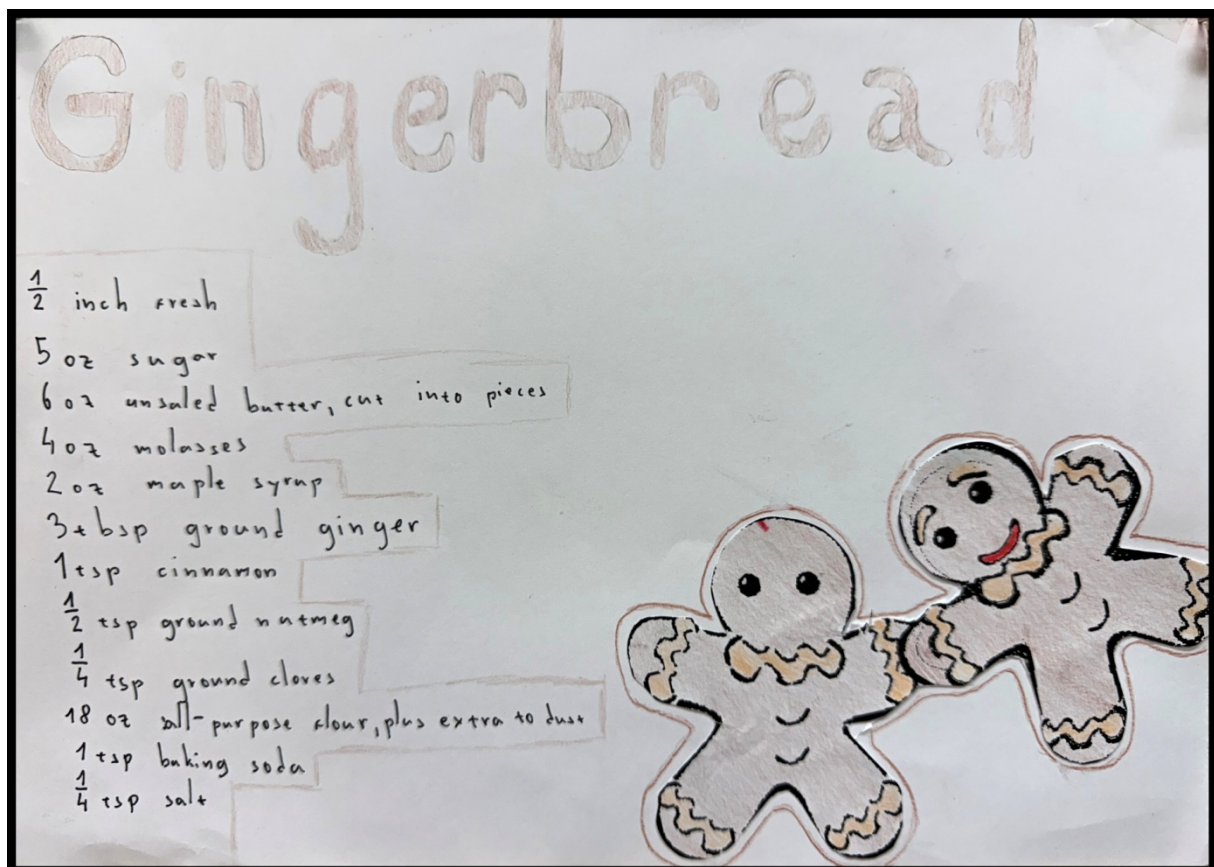 Gingerbread
1/2 inch fresh
5 oz sugar
6 oz unsaled butter, cut into pieces
4 oz molasses
2 oz maple syrup
3 tbsp ground ginger
1 tsp cinnamon
1/2 tsp ground nutmeg
1/4 tsp ground cloves
18 oz all-purpose flour, plus extra to dust
1 tsp baking soda
1/4 tsp salt